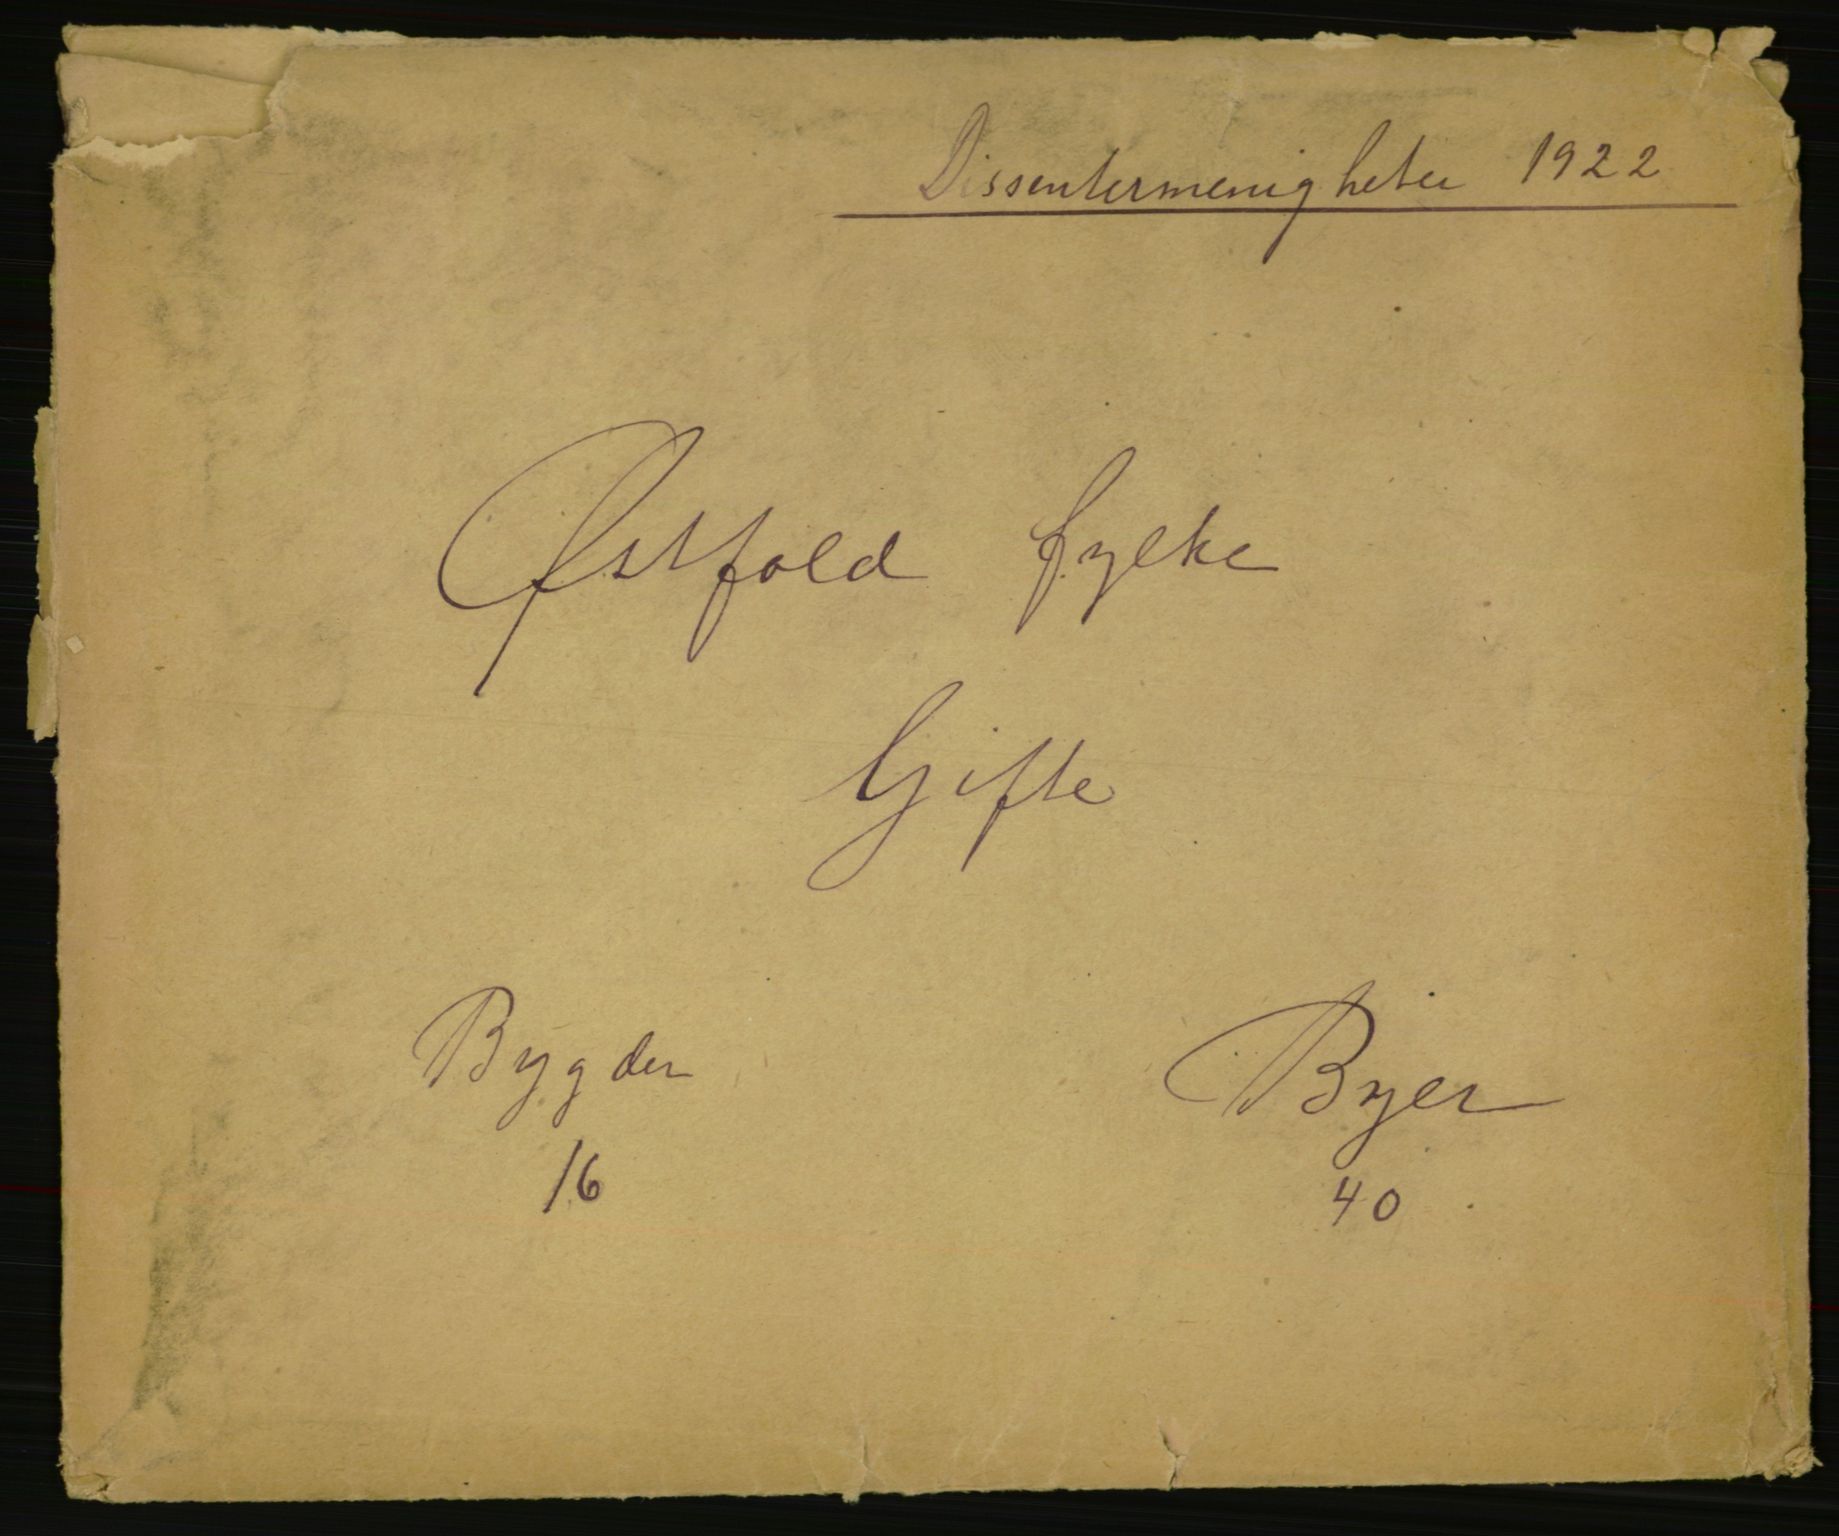 Dissentermenigheter 1922
Østfold fylke
Gifte
Bygder Byer
16 40